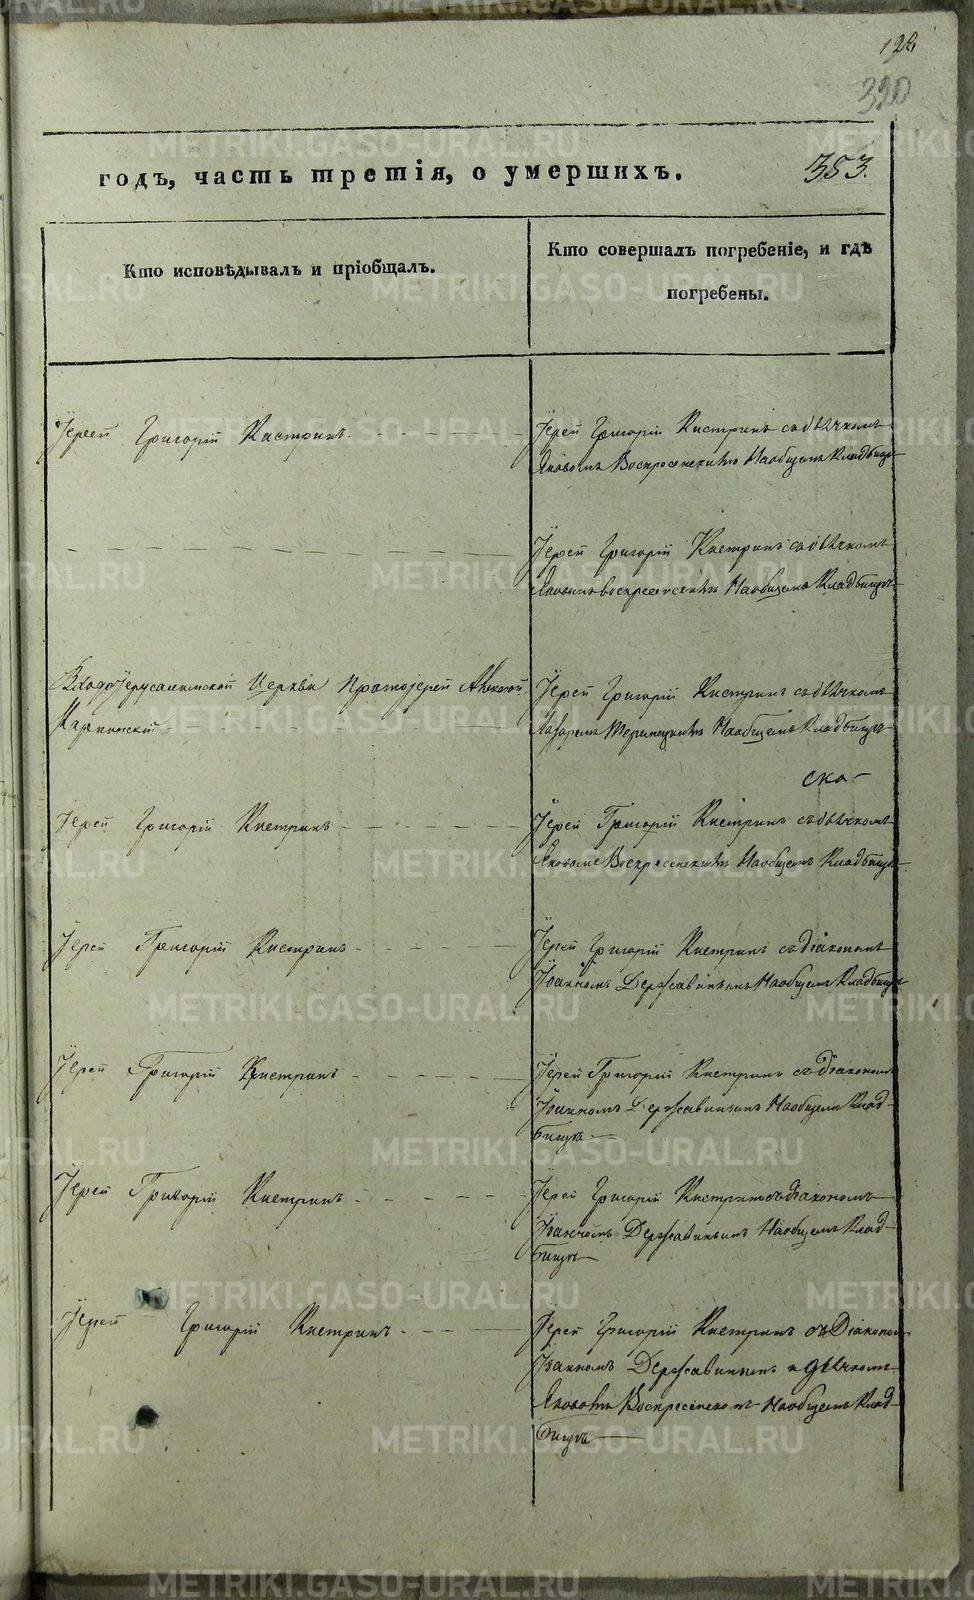 320
353.
годъ, часть третія, о умершихъ.
Кто исповѣдывалъ и пріобщалъ.
Кто совершалъ погребеніе, и гдѣ
погребены.
Іерей Григорій Кистринъ
Іерей Григорій Кистринъ съ дьячкомъ
Яковомъ Воскресенскимъ На общемъ Кладбищѣ
Іерей Григорій Кистринъ съ дьячкомъ
Яковомъ Воскресенскимъ На общемъ Кладбищѣ
Входоіерусалимской Церкви Протоіерей Алексей
Карпинскій
Іерей Григорій Кистринъ съ дьячкомъ
На общемъ Кладбищѣ
ско-
Іерей Григорій Кистринъ
Іерей Григорій Кистринъ съ дьячкомъ
Яковомъ Воскресенскимъ На общемъ Кладбищѣ
Іерей Григорій Кистринъ
Іерей Григорій Кистринъ съ діакономъ
Іоанномъ Державинымъ На общемъ Кладбищѣ
Іерей Григорій Кистринъ
Іерей Григорій Кистринъ съ діакономъ
Іоанномъ Державинымъ На общемъ Клад-
бищѣ
Іерей Григорій Кистринъ
Іерей Григорій Кистринъ съ діакономъ
Іоанномъ Державинымъ На общемъ Клад-
бищѣ
Іерей Григорій Кистринъ
Іерей Григорій Кистринъ съ Діакономъ
Іоанномъ Державинымъ и дьячкомъ
Яковомъ Воскресенскомъ На общемъ Клад-
бищѣ
METRIKI.GASO-URAL.RU